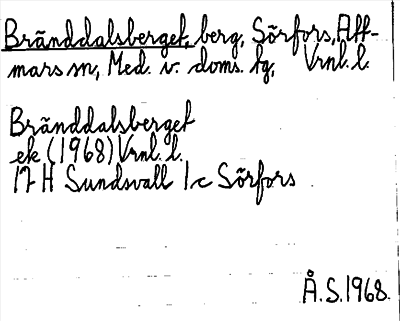 Bränddalsberget, berg, Sörfors, Att-
mars sn, Med. v. doms. tg, Vrnl. l.
Bränddalsberget
ek (1968) Vrnl. l.
17 H Sundsvall 1 c Sörfors
Å. S. 1968.